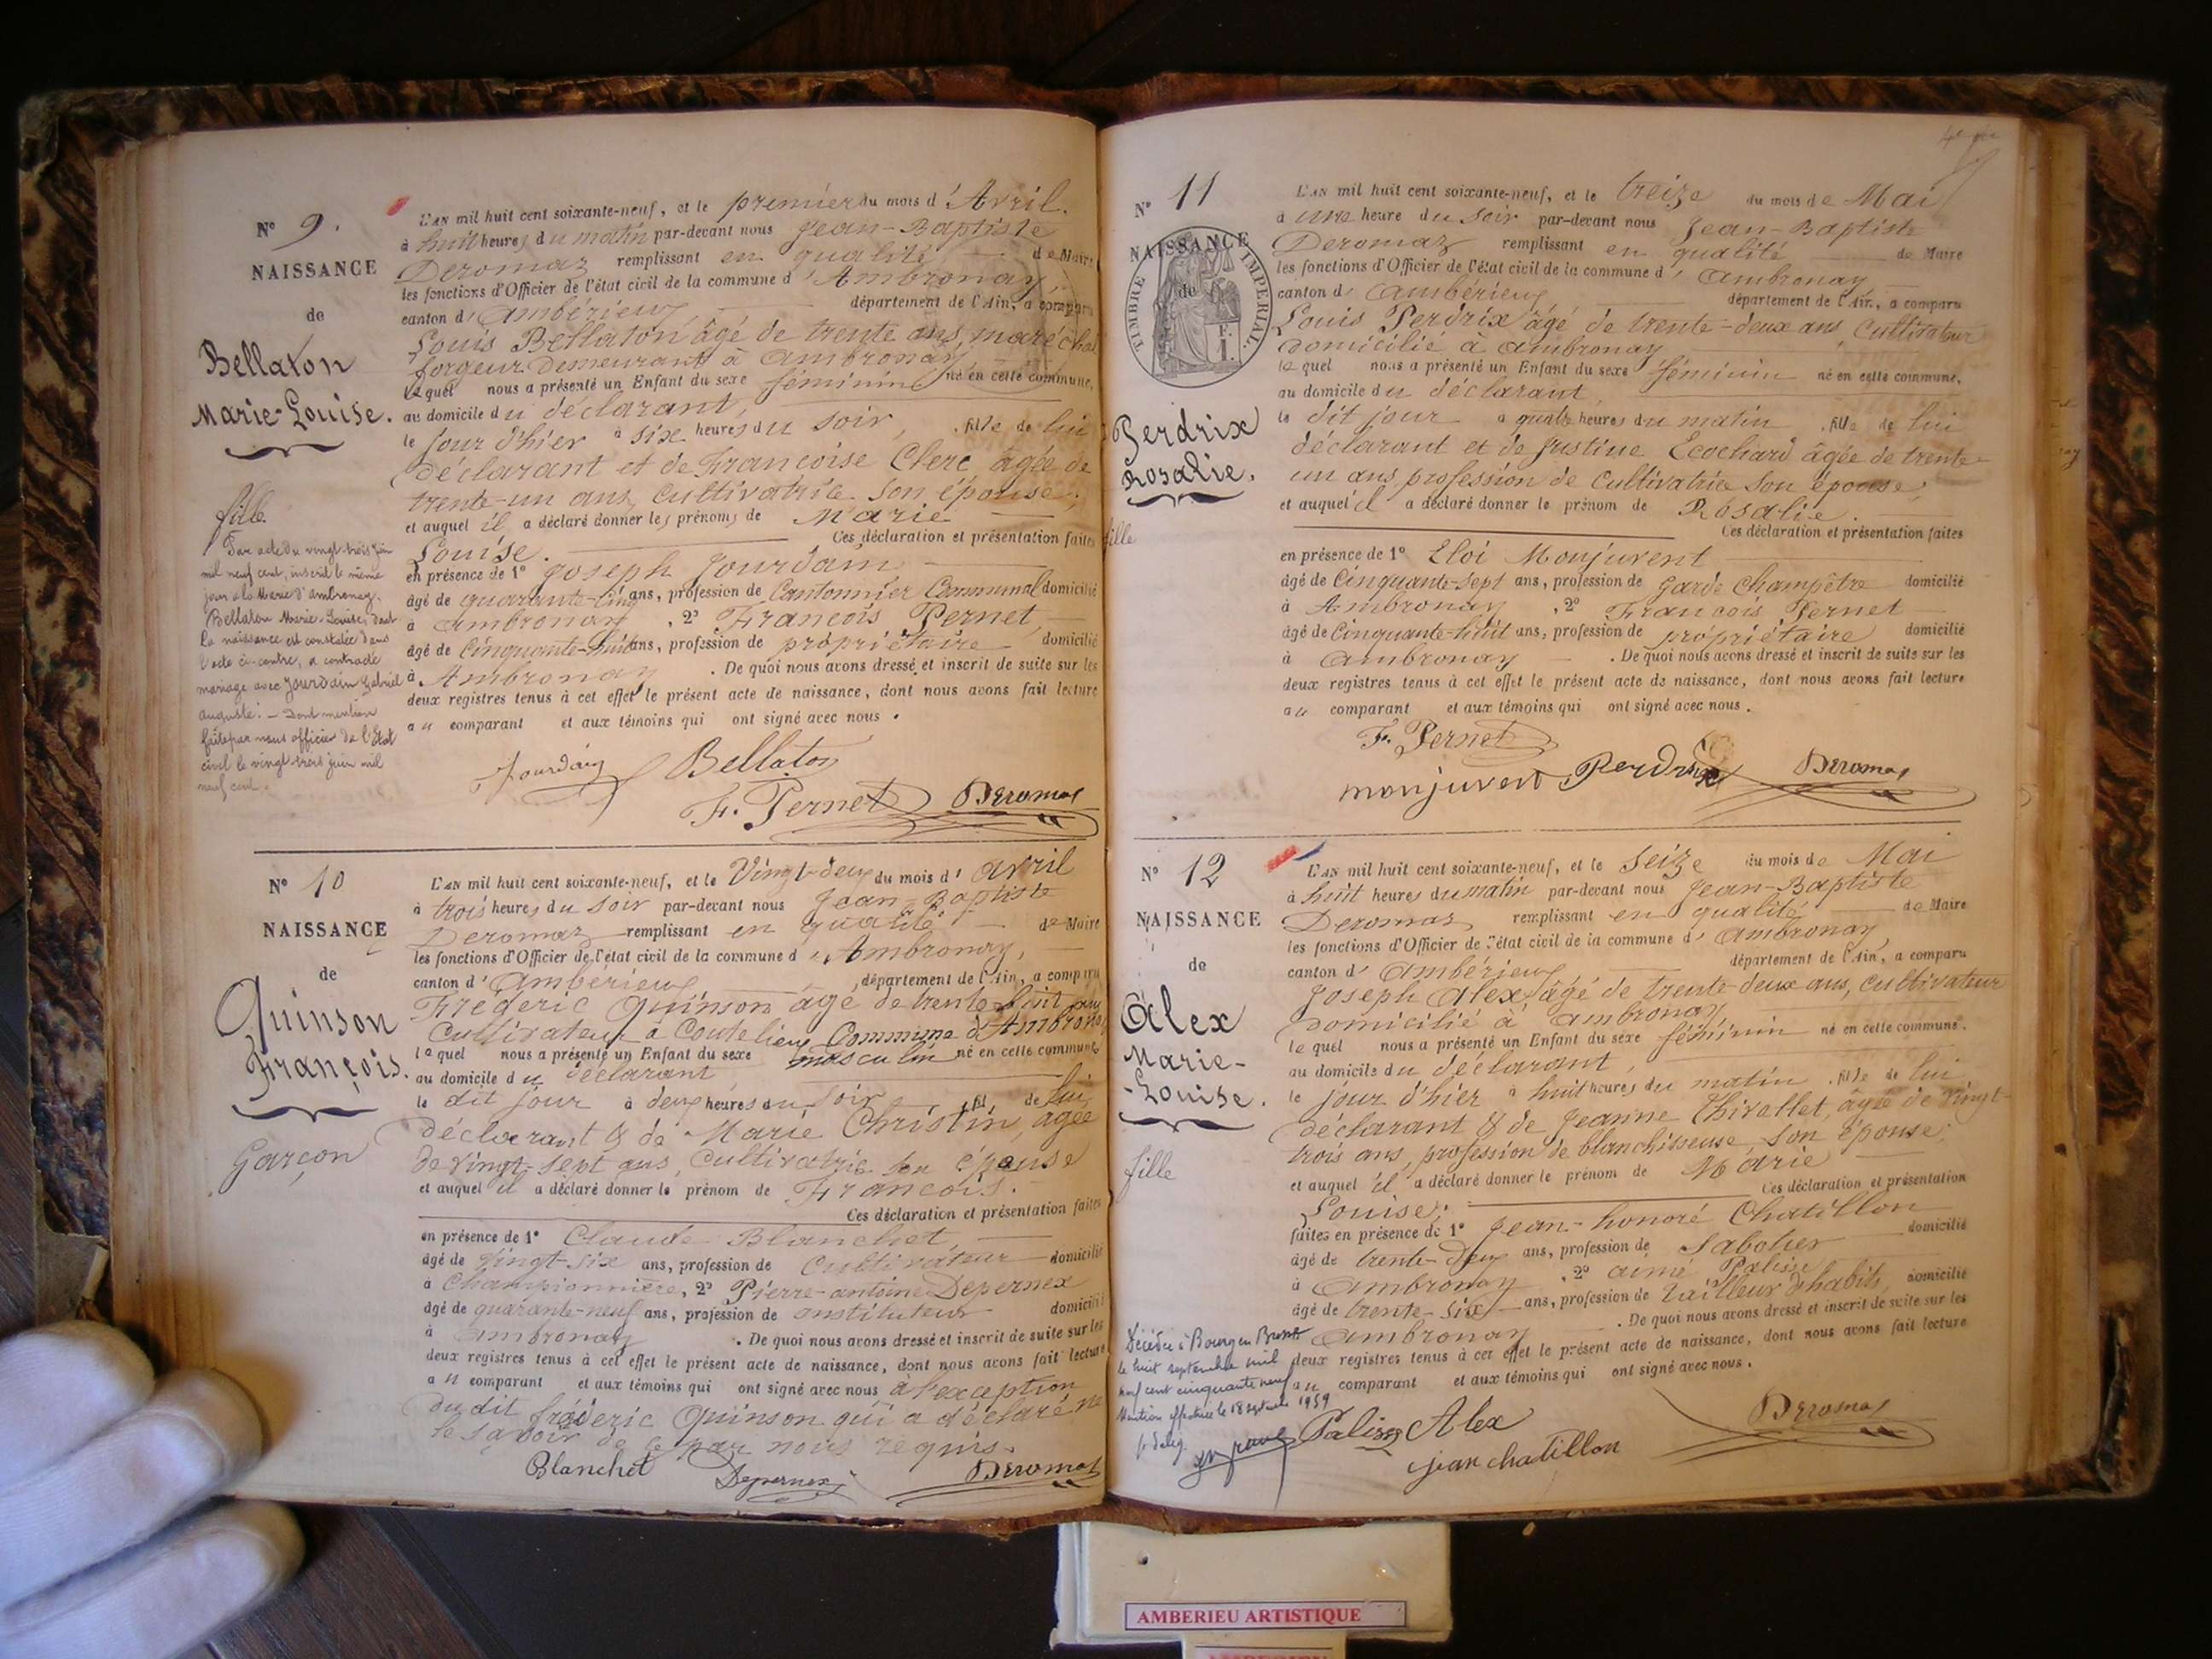 N° 9.
NAISSANCE
de
Bellaton
Marie-Louise.
fille.
Par acte du vingt-trois juin
mil neuf cent, inscrit le même
jour à la Mairie d'Ambronay,
Bellaton Marie-Louise, dont
la naissance est constatée dans
l'acte ci-contre, a contracté
mariage avec Jourdain Gabriel
auguste. — Dont mention
faite par nous officier de l'État
civil le vingt-trois juin mil
neuf cent.
L'AN mil huit cent soixante-neuf, et le premier du mois d'Avril.
à huit heures du matin par-devant nous Jean-Baptiste
Deromaz remplissant en qualité de Maire
les fonctions d'Officier de l'état civil de la commune d'Ambronay,
canton d'Ambérieux, département de l'Ain, a comparu
Louis Bellaton âgé de trente ans, maréchal
forgeur Demeurant à Ambronay,
lequel nous a présenté un Enfant du sexe féminin né en cette commune,
au domicile du déclarant,
le jour d'hier à six heures du soir, fille de lui
Déclarant et de Françoise Clerc âgée de
trente-un ans, Cultivatrice son épouse,
et auquel il a déclaré donner les prénoms de Marie
Louise. Ces déclaration et présentation faites
en présence de 1° Joseph Jourdain
âgé de quarante-cinq ans, profession de Cantonnier Communal domicilié
à Ambronay, 2° François Pernet,
âgé de Cinquante-huit ans, profession de propriétaire domicilié
à Ambronay. De quoi nous avons dressé et inscrit de suite sur les
deux registres tenus à cet effet le présent acte de naissance, dont nous avons fait lecture
au comparant et aux témoins qui ont signé avec nous.
Jourdain Bellaton
F. Pernet Deromaz
N° 10
NAISSANCE
de
Quinson
François.
Garçon
L'AN mil huit cent soixante-neuf, et le Vingt-deux du mois d'avril
à trois heures du soir par-devant nous Jean-Baptiste
Deromaz remplissant en qualité de Maire
les fonctions d'Officier de l'état civil de la commune d'Ambronay,
canton d'Ambérieux, département de l'Ain, a comparu
Fréderic Quinson âgé de trente-huit ans
Cultivateur à Coutelieux Commune d'Ambronay
lequel nous a présenté un Enfant du sexe masculin né en cette commune
au domicile du déclarant,
le dit jour à deux heures du soir, fils de lui
déclarant & de Marie Christin, âgée
de vingt-sept ans, Cultivatrice son épouse
et auquel il a déclaré donner le prénom de François.
Ces déclaration et présentation faites
en présence de 1° Claude Blanchet
âgé de vingt-six ans, profession de Cultivateur domicilié
à Championnière, 2° Pierre-antoine Depernex
âgé de quarante-neuf ans, profession de instituteur domicilié
à Ambronay. De quoi nous avons dressé et inscrit de suite sur les
deux registres tenus à cet effet le présent acte de naissance, dont nous avons fait lecture
au comparant et aux témoins qui ont signé avec nous à l'exception
du dit fréderic Quinson qui a déclaré ne
le savoir de ce par nous requis.
Blanchet Depernex Deromaz
N° 11
NAISSANCE
de
TIMBRE IMPERIAL.
Perdrix
Rosalie.
fille
L'AN mil huit cent soixante-neuf, et le treize du mois de Mai
à une heure du soir par-devant nous Jean-Baptiste
Deromaz remplissant en qualité de Maire
les fonctions d'Officier de l'état civil de la commune d'Ambronay
canton d'Ambérieux, département de l'Ain, a comparu
Louis Perdrix âgé de trente-deux ans, Cultivateur
domicilié à Ambronay
lequel nous a présenté un Enfant du sexe féminin né en cette commune,
au domicile du déclarant,
le dit jour à quatre heures du matin, fille de lui
déclarant et de Justine Ecochard âgée de trente-
un ans, profession de Cultivatrice son épouse,
et auquel il a déclaré donner le prénom de Rosalie.
Ces déclaration et présentation faites
en présence de 1° Eloi Monjuvent
âgé de Cinquante-sept ans, profession de garde Champêtre domicilié
à Ambronay, 2° François Pernet
âgé de Cinquante-huit ans, profession de propriétaire domicilié
à Ambronay. De quoi nous avons dressé et inscrit de suite sur les
deux registres tenus à cet effet le présent acte de naissance, dont nous avons fait lecture
au comparant et aux témoins qui ont signé avec nous.
F. Pernet
monjuvent Perdrix Deromaz
N° 12
NAISSANCE
de
Alex
Marie-
-Louise.
fille
Décédée à Bourg en Bresse
le huit septembre mil
neuf cent cinquante neuf
Mention effectuée le 18 septembre 1959
L'AN mil huit cent soixante-neuf, et le Seize du mois de Mai
à huit heures du matin par-devant nous Jean-Baptiste
Deromaz remplissant en qualité de Maire
les fonctions d'Officier de l'état civil de la commune d'Ambronay,
canton d'Ambérieux département de l'Ain, a comparu
Joseph Alex, âgé de trente-deux ans, cultivateur
Domicilié à Ambronay,
lequel nous a présenté un Enfant du sexe féminin né en cette commune.
au domicile du déclarant,
le jour d'hier à huit heures du matin, fille de lui
déclarant & de Jeanne Chivallet, âgée de Vingt-
trois ans, profession de blanchisseuse, son épouse,
et auquel il a déclaré donner le prénom de Marie
Louise; Ces déclaration et présentation
faites en présence de 1° Jean-honoré Chatillon
âgé de trente-deux ans, profession de Sabotier domicilié
à Ambronay, 2° aimé Palisse
âgé de trente-six ans, profession de tailleur d'habits, domicilié
à Ambronay. De quoi nous avons dressé et inscrit de suite sur les
deux registres tenus à cet effet le présent acte de naissance, dont nous avons fait lecture
au comparant et aux témoins qui ont signé avec nous.
Palisse Alex Deromaz
jean chatillon
AMBERIEU ARTISTIQUE